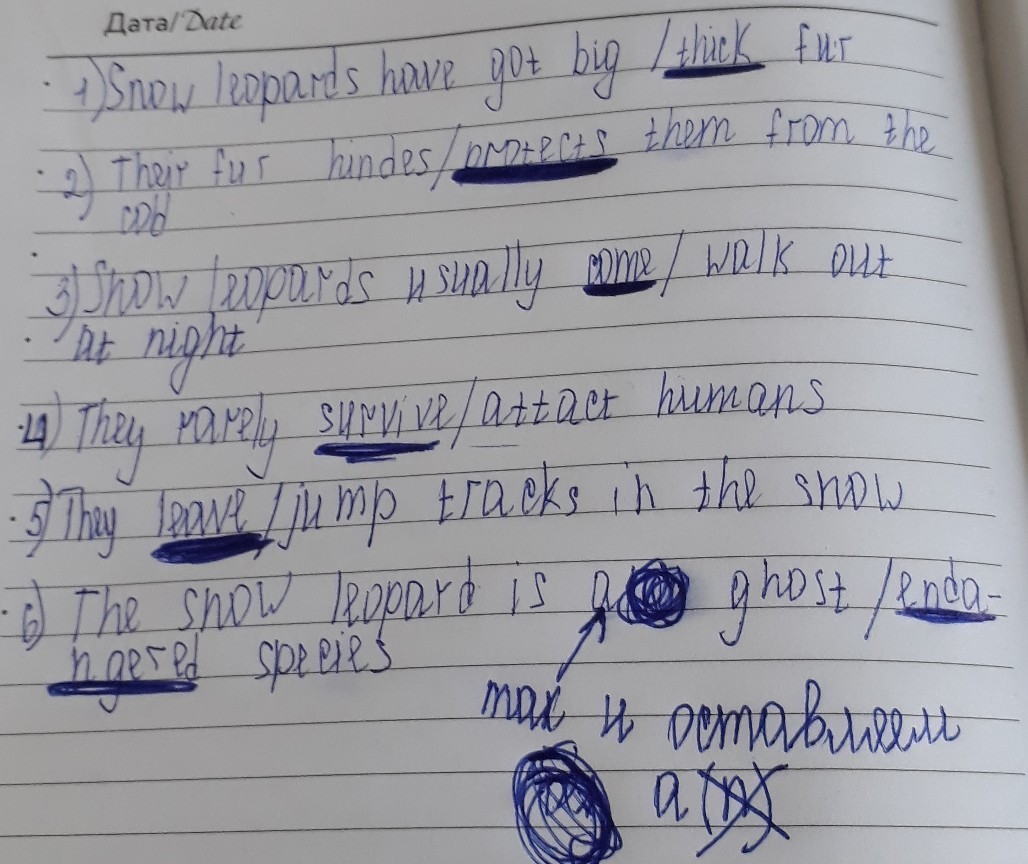 Дата/Date
1) Snow leopards have got big /thick fur
2) Their fur hindes/protects them from the
cold
3) Snow leopards usually come/ walk out
at night
4) They rarely survive/attact humans
5) They leave/jump tracks in the snow
6) The snow leopard is a ghost /enda-
ngered species
так и оставляем
a(n)